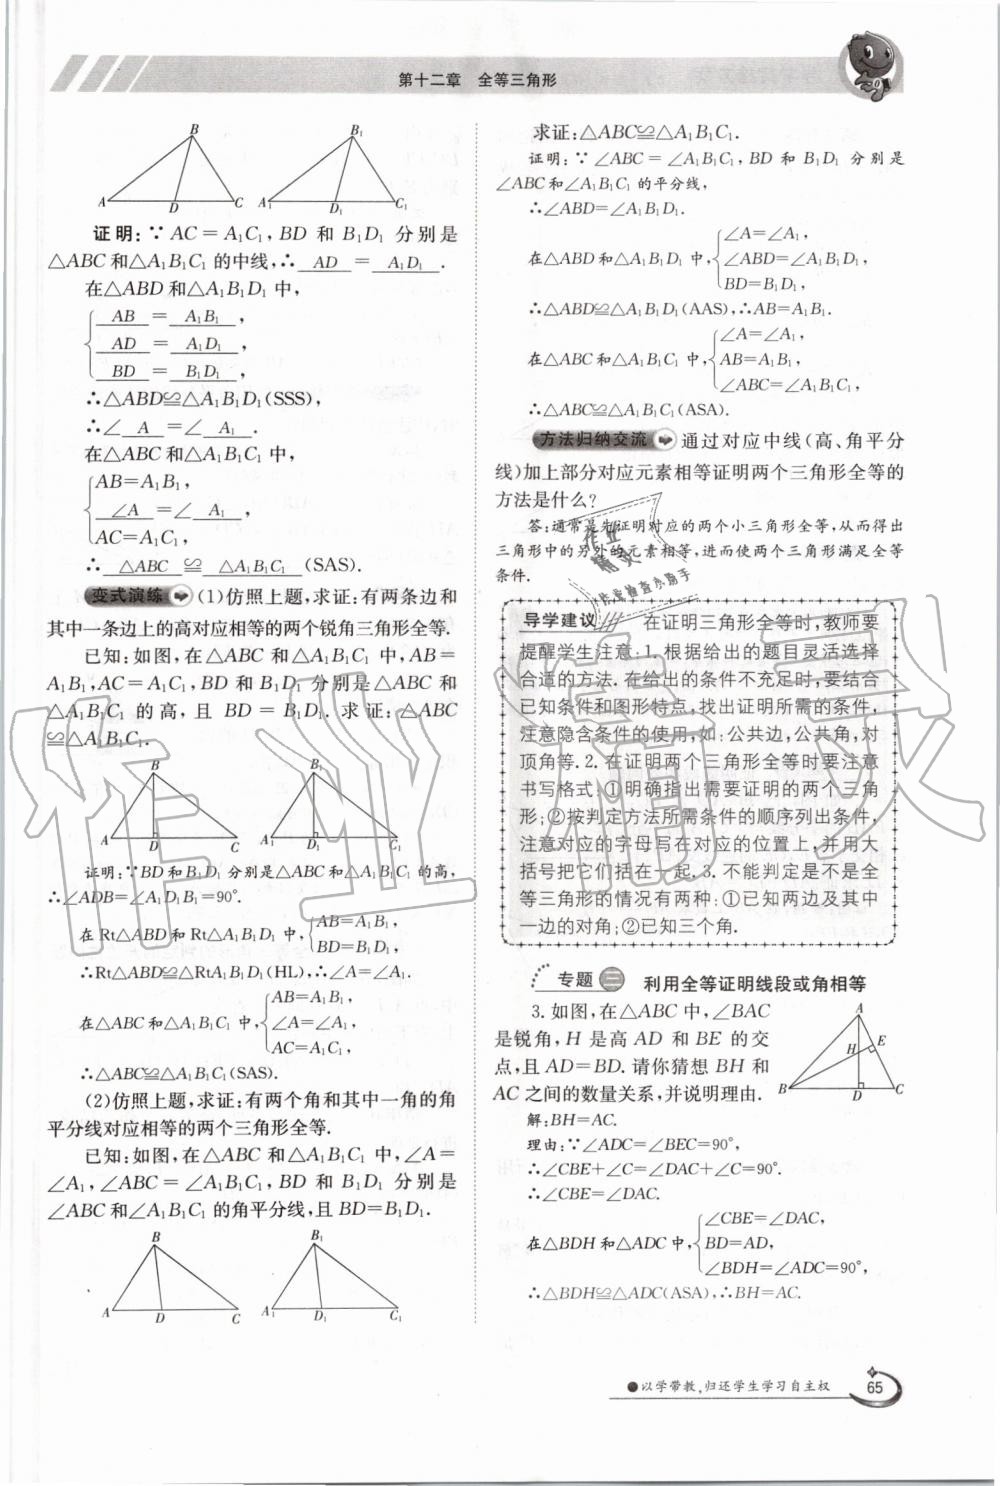 第十二章 全等三角形
B B₁
A D C A₁ D₁ C₁
证明:∵AC=A₁C₁,BD 和 B₁D₁ 分别是
△ABC和△A₁B₁C₁的中线,∴ AD = A₁D₁ .
在△ABD和△A₁B₁D₁中,
AB = A₁B₁ ,
AD = A₁D₁ ,
BD = B₁D₁ ,
∴△ABD≌△A₁B₁D₁(SSS),
∴∠ A =∠ A₁ .
在△ABC和△A₁B₁C₁中,
AB=A₁B₁,
∠A =∠ A₁ ,
AC=A₁C₁,
∴ △ABC ≌ △A₁B₁C₁ (SAS).
变式演练 (1)仿照上题,求证:有两条边和
其中一条边上的高对应相等的两个锐角三角形全等.
已知:如图,在△ABC和△A₁B₁C₁中,AB=
A₁B₁,AC=A₁C₁,BD和B₁D₁分别是△ABC和
△A₁B₁C₁的高,且 BD=B₁D₁.求证:△ABC
≌△A₁B₁C₁.
B B₁
A D C A₁ D₁ C₁
证明:∵BD和B₁D₁分别是△ABC和△A₁B₁C₁的高,
∴∠ADB=∠A₁D₁B₁=90°.
在Rt△ABD和Rt△A₁B₁D₁中, AB=A₁B₁,
BD=B₁D₁,
∴Rt△ABD≌△RtA₁B₁D₁(HL),∴∠A=∠A₁.
AB=A₁B₁,
在△ABC和△A₁B₁C₁中, ∠A=∠A₁,
AC=A₁C₁,
∴△ABC≌△A₁B₁C₁(SAS).
(2)仿照上题,求证:有两个角和其中一角的角
平分线对应相等的两个三角形全等.
已知:如图,在△ABC和△A₁B₁C₁中,∠A=
∠A₁,∠ABC=∠A₁B₁C₁,BD和B₁D₁分别是
∠ABC和∠A₁B₁C₁的角平分线,且BD=B₁D₁.
B B₁
A D C A₁ D₁ C₁
求证:△ABC≌△A₁B₁C₁.
证明:∵∠ABC=∠A₁B₁C₁,BD和B₁D₁分别是
∠ABC和∠A₁B₁C₁的平分线,
∴∠ABD=∠A₁B₁D₁.
∠A=∠A₁,
在△ABD和△A₁B₁D₁中, ∠ABD=∠A₁B₁D₁,
BD=B₁D₁,
∴△ABD≌△A₁B₁D₁(AAS),∴AB=A₁B₁.
∠A=∠A₁,
在△ABC和△A₁B₁C₁中, AB=A₁B₁,
∠ABC=∠A₁B₁C₁,
∴△ABC≌△A₁B₁C₁(ASA).
方法归纳交流 通过对应中线(高、角平分
线)加上部分对应元素相等证明两个三角形全等的
方法是什么?
答:通常是先证明对应的两个小三角形全等,从而得出
三角形中的另外的元素相等,进而使两个三角形满足全等
条件.
导学建议 在证明三角形全等时,教师要
提醒学生注意:1.根据给出的题目灵活选择
合适的方法.在给出的条件不充足时,要结合
已知条件和图形特点,找出证明所需的条件,
注意隐含条件的使用,如:公共边,公共角,对
顶角等.2.在证明两个三角形全等时要注意
书写格式:①明确指出需要证明的两个三角
形;②按判定方法所需条件的顺序列出条件,
注意对应的字母写在对应的位置上,并用大
括号把它们括在一起.3.不能判定是不是全
等三角形的情况有两种:①已知两边及其中
一边的对角;②已知三个角.
专题三 利用全等证明线段或角相等
3.如图,在△ABC中,∠BAC
是锐角,H是高AD和BE的交
点,且AD=BD.请你猜想BH和
AC之间的数量关系,并说明理由.
A
H E
B D C
解:BH=AC.
理由:∵∠ADC=∠BEC=90°,
∴∠CBE+∠C=∠DAC+∠C=90°.
∴∠CBE=∠DAC.
∠CBE=∠DAC,
在△BDH和△ADC中, BD=AD,
∠BDH=∠ADC=90°,
∴△BDH≌△ADC(ASA),∴BH=AC.
●以学带教,归还学生学习自主权
65
作业精灵